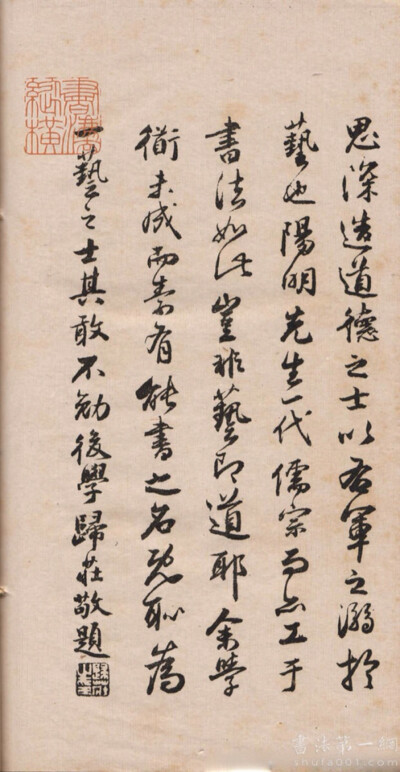 思深造道德之士以右軍之溺於
藝也陽明先生一代儒宗而亦工于
書法如此豈非藝即道耶余學
術未成而素有能書之名既恥為
一藝之士其敢不勉後學歸莊敬題
書法第一網
shufa001.com